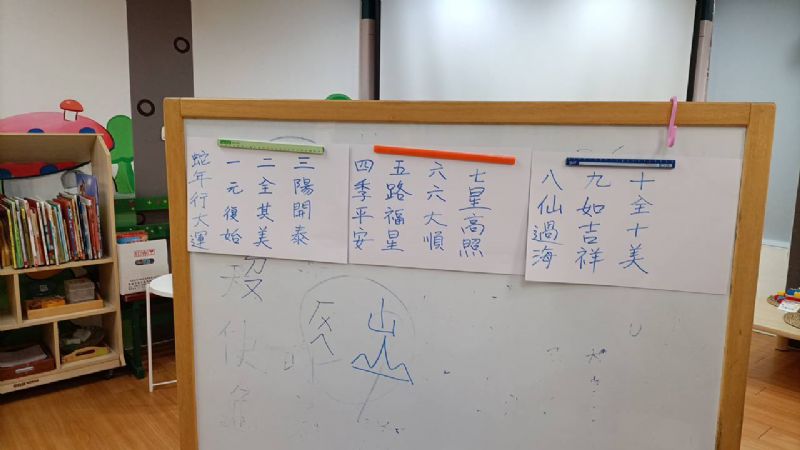 蛇年行大運
一元復始
二全其美
三陽開泰
四季平安
五路福星
六六大順
七星高照
八仙過海
九如吉祥
十全十美
山